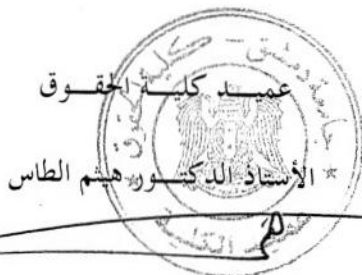 عميد كليه الحقوق
الأستاذ الدكتور هيثم الطاس
جامعة دمشق - كلية الحقوق